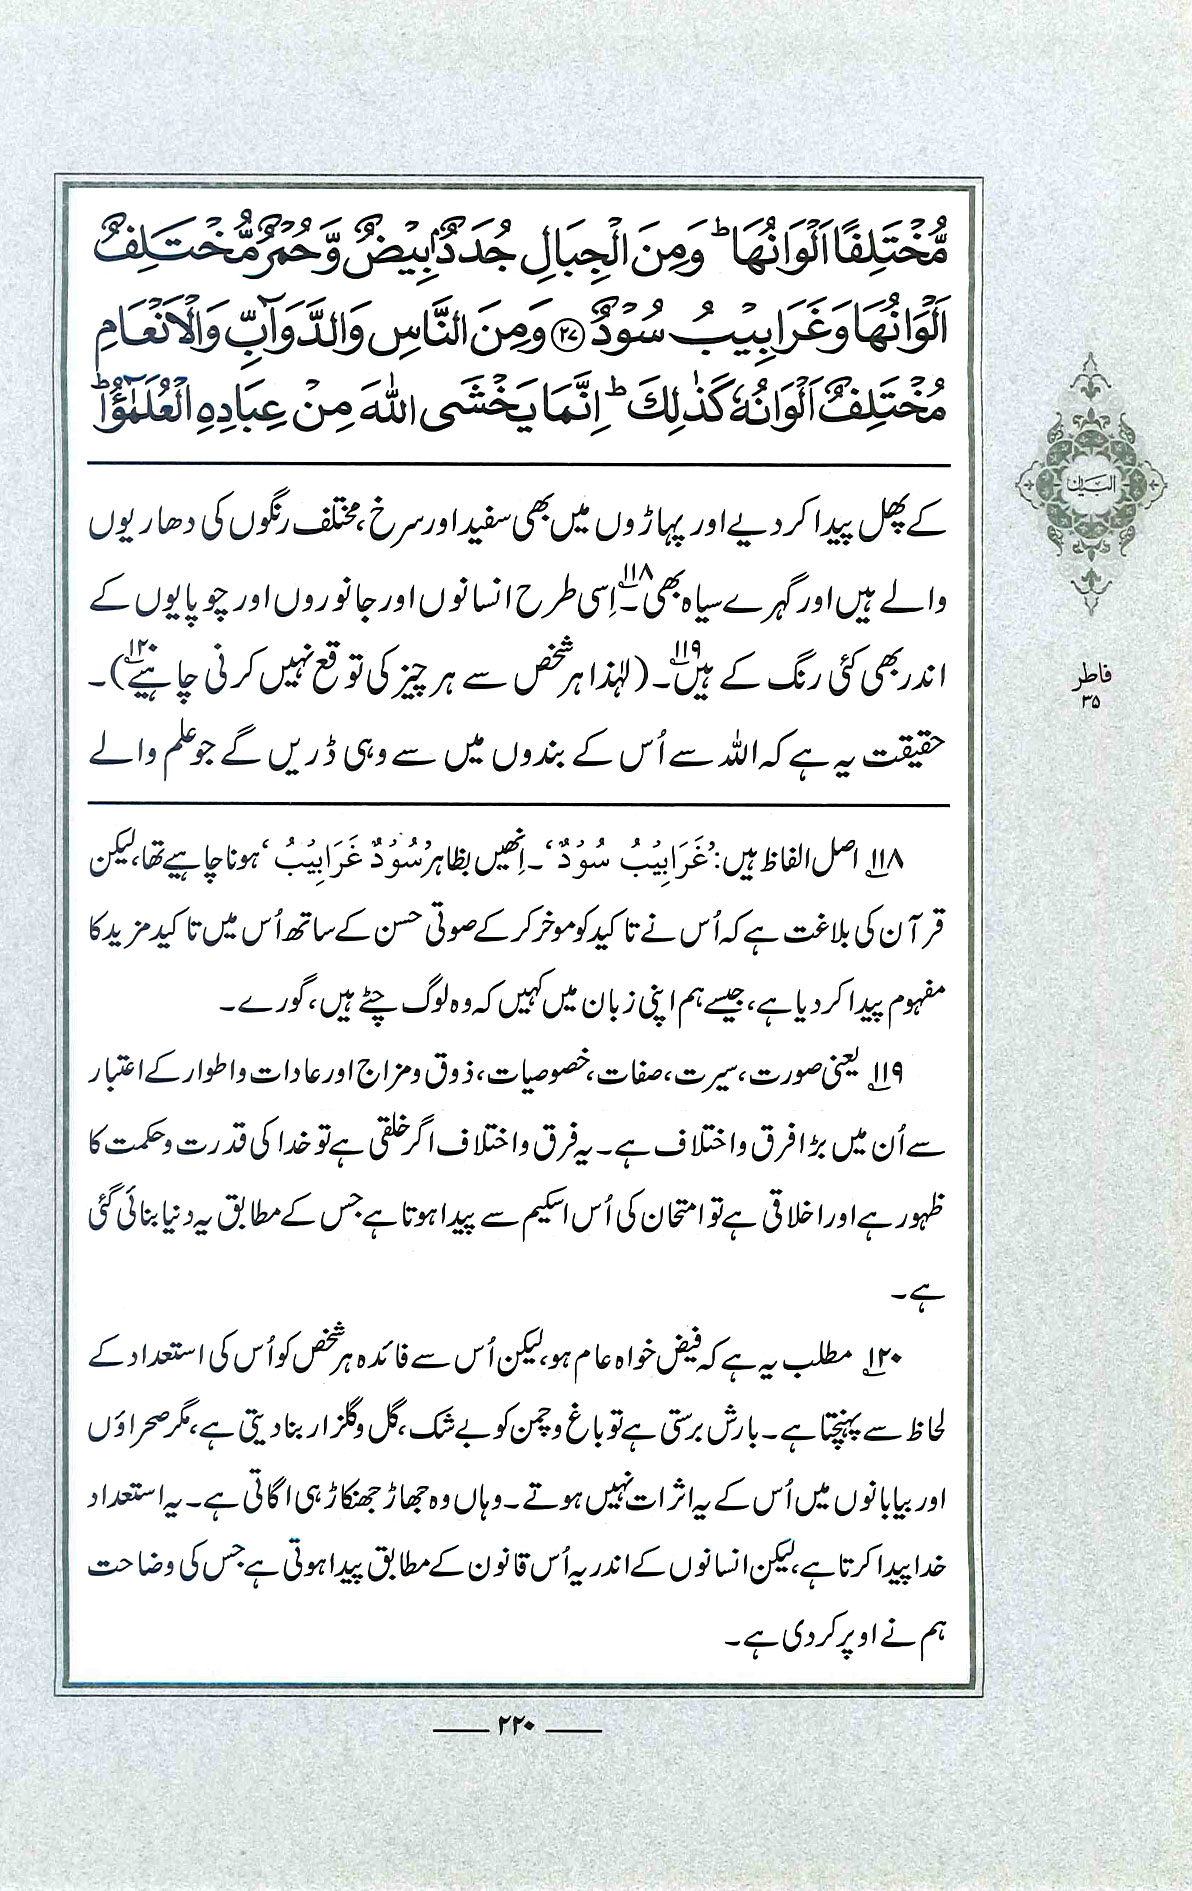 مُّخْتَلِفًا اَلْوَانُهَاؕ وَمِنَ الْجِبَالِ جُدَدٌۢ بِیْضٌ وَّحُمْرٌ مُّخْتَلِفٌ
اَلْوَانُهَا وَغَرَابِیْبُ سُوْدٌ ﴿۲۷﴾ وَمِنَ النَّاسِ وَالدَّوَآبِّ وَالْاَنْعَامِ
مُخْتَلِفٌ اَلْوَانُهٗ كَذٰلِكَؕ اِنَّمَا یَخْشَی اللّٰهَ مِنْ عِبَادِهِ الْعُلَمٰٓؤُاؕ
کے پھل پیدا کر دیے اور پہاڑوں میں بھی سفید اور سرخ، مختلف رنگوں کی دھاریوں
والے ہیں اور گہرے سیاہ بھی۱۱۸۔ اِسی طرح انسانوں اور جانوروں اور چوپایوں کے
اندر بھی کئی رنگ کے ہیں۱۱۹۔ (لہٰذا ہر شخص سے ہر چیز کی توقع نہیں کرنی چاہیے۱۲۰)۔
حقیقت یہ ہے کہ اللہ سے اُس کے بندوں میں سے وہی ڈریں گے جو علم والے
۱۱۸ اصل الفاظ ہیں: ’غَرَابِیْبُ سُوْدٌ‘۔ اِنھیں بظاہر ’سُوْدٌ غَرَابِیْبُ‘ ہونا چاہیے تھا، لیکن
قرآن کی بلاغت ہے کہ اُس نے تاکید کو موخر کر کے صوتی حسن کے ساتھ اُس میں تاکید مزید کا
مفہوم پیدا کر دیا ہے، جیسے ہم اپنی زبان میں کہیں کہ وہ لوگ چٹے ہیں، گورے۔
۱۱۹ یعنی صورت، سیرت، صفات، خصوصیات، ذوق و مزاج اور عادات و اطوار کے اعتبار
سے اُن میں بڑا فرق و اختلاف ہے۔ یہ فرق و اختلاف اگر خلقی ہے تو خدا کی قدرت و حکمت کا
ظہور ہے اور اخلاقی ہے تو امتحان کی اُس اسکیم سے پیدا ہوتا ہے جس کے مطابق یہ دنیا بنائی گئی
ہے۔
۱۲۰ مطلب یہ ہے کہ فیض خواہ عام ہو، لیکن اُس سے فائدہ ہر شخص کو اُس کی استعداد کے
لحاظ سے پہنچتا ہے۔ بارش برستی ہے تو باغ و چمن کو بے شک، گل و گلزار بنا دیتی ہے، مگر صحراؤں
اور بیابانوں میں اُس کے یہ اثرات نہیں ہوتے۔ وہاں وہ جھاڑ جھنکاڑ ہی اگاتی ہے۔ یہ استعداد
خدا پیدا کرتا ہے، لیکن انسانوں کے اندر یہ اُس قانون کے مطابق پیدا ہوتی ہے جس کی وضاحت
ہم نے اوپر کر دی ہے۔
البیان
فاطر
۳۵
۲۲۰